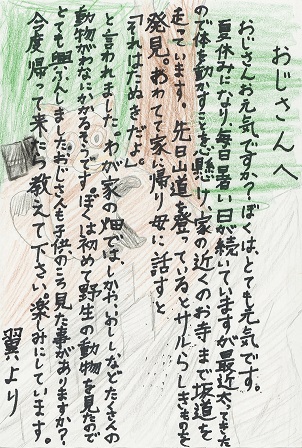 おじさんへ
おじさんお元気ですか?ぼくは、とても元気です。
夏休みになり、毎日暑い日が続いていますが、最近太ってきた
ので体を動かすことを心懸け、家の近くのお寺まで坂道を
走っています。先日山道を登っているとサルらしきものを
発見。あわてて家に帰り母に話すと
「それはたぬきだよ。」
と言われました。わが家の畑では、しかやいのしなどたくさんの
動物がわなにかかるそうです。ぼくは初めて野生の動物を見たので
とても興ふんしましたおじさんも子供のころ見た事がありますか?
今度帰って来たら教えて下さい。楽しみにしています。
翼より